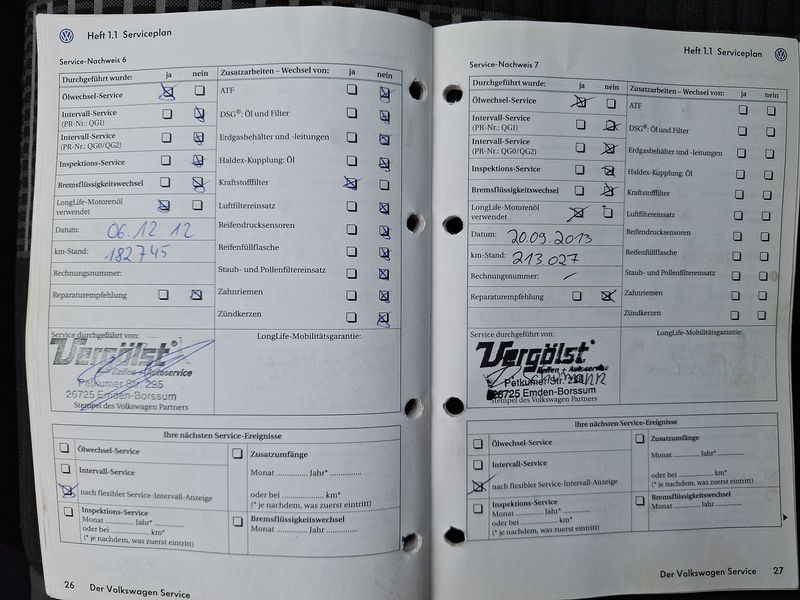 Heft 1.1 Serviceplan
Service-Nachweis 6
Durchgeführt wurde: ja nein
Ölwechsel-Service
Intervall-Service
(PR-Nr.: QG1)
Intervall-Service
(PR-Nr.: QG0/QG2)
Inspektions-Service
Bremsflüssigkeitswechsel
LongLife-Motorenöl
verwendet
Datum: 06.12 12
km-Stand: 182745
Rechnungsnummer:
Reparaturempfehlung
Zusatzarbeiten – Wechsel von: ja nein
ATF
DSG®: Öl und Filter
Erdgasbehälter und -leitungen
Haldex-Kupplung: Öl
Kraftstofffilter
Luftfiltereinsatz
Reifendrucksensoren
Reifenfüllflasche
Staub- und Pollenfiltereinsatz
Zahnriemen
Zündkerzen
Service durchgeführt von:
Vergölst
Reifen + Autoservice
Petkumer Str. 235
26725 Emden-Borssum
Stempel des Volkswagen Partners
LongLife-Mobilitätsgarantie:
Ihre nächsten Service-Ereignisse
Ölwechsel-Service
Intervall-Service
nach flexibler Service-Intervall-Anzeige
Inspektions-Service
Monat ............. Jahr* .............
oder bei ............. km*
(* je nachdem, was zuerst eintritt)
Zusatzumfänge
Monat ............. Jahr* .............
oder bei ............. km*
(* je nachdem, was zuerst eintritt)
Bremsflüssigkeitswechsel
Monat ............. Jahr .............
26 Der Volkswagen Service
Heft 1.1 Serviceplan
Service-Nachweis 7
Durchgeführt wurde: ja nein
Ölwechsel-Service
Intervall-Service
(PR-Nr.: QG1)
Intervall-Service
(PR-Nr.: QG0/QG2)
Inspektions-Service
Bremsflüssigkeitswechsel
LongLife-Motorenöl
verwendet
Datum: 20.09.2013
km-Stand: 213.027
Rechnungsnummer: –
Reparaturempfehlung
Zusatzarbeiten – Wechsel von: ja nein
ATF
DSG®: Öl und Filter
Erdgasbehälter und -leitungen
Haldex-Kupplung: Öl
Kraftstofffilter
Luftfiltereinsatz
Reifendrucksensoren
Reifenfüllflasche
Staub- und Pollenfiltereinsatz
Zahnriemen
Zündkerzen
Service durchgeführt von:
Vergölst
Reifen + Autoservice
Petkumer Str.
26725 Emden-Borssum
Stempel des Volkswagen Partners
LongLife-Mobilitätsgarantie:
Ihre nächsten Service-Ereignisse
Ölwechsel-Service
Intervall-Service
nach flexibler Service-Intervall-Anzeige
Inspektions-Service
Monat ............. Jahr* .............
oder bei ............. km*
(* je nachdem, was zuerst eintritt)
Zusatzumfänge
Monat ............. Jahr* .............
oder bei ............. km*
(* je nachdem, was zuerst eintritt)
Bremsflüssigkeitswechsel
Monat ............. Jahr .............
Der Volkswagen Service 27